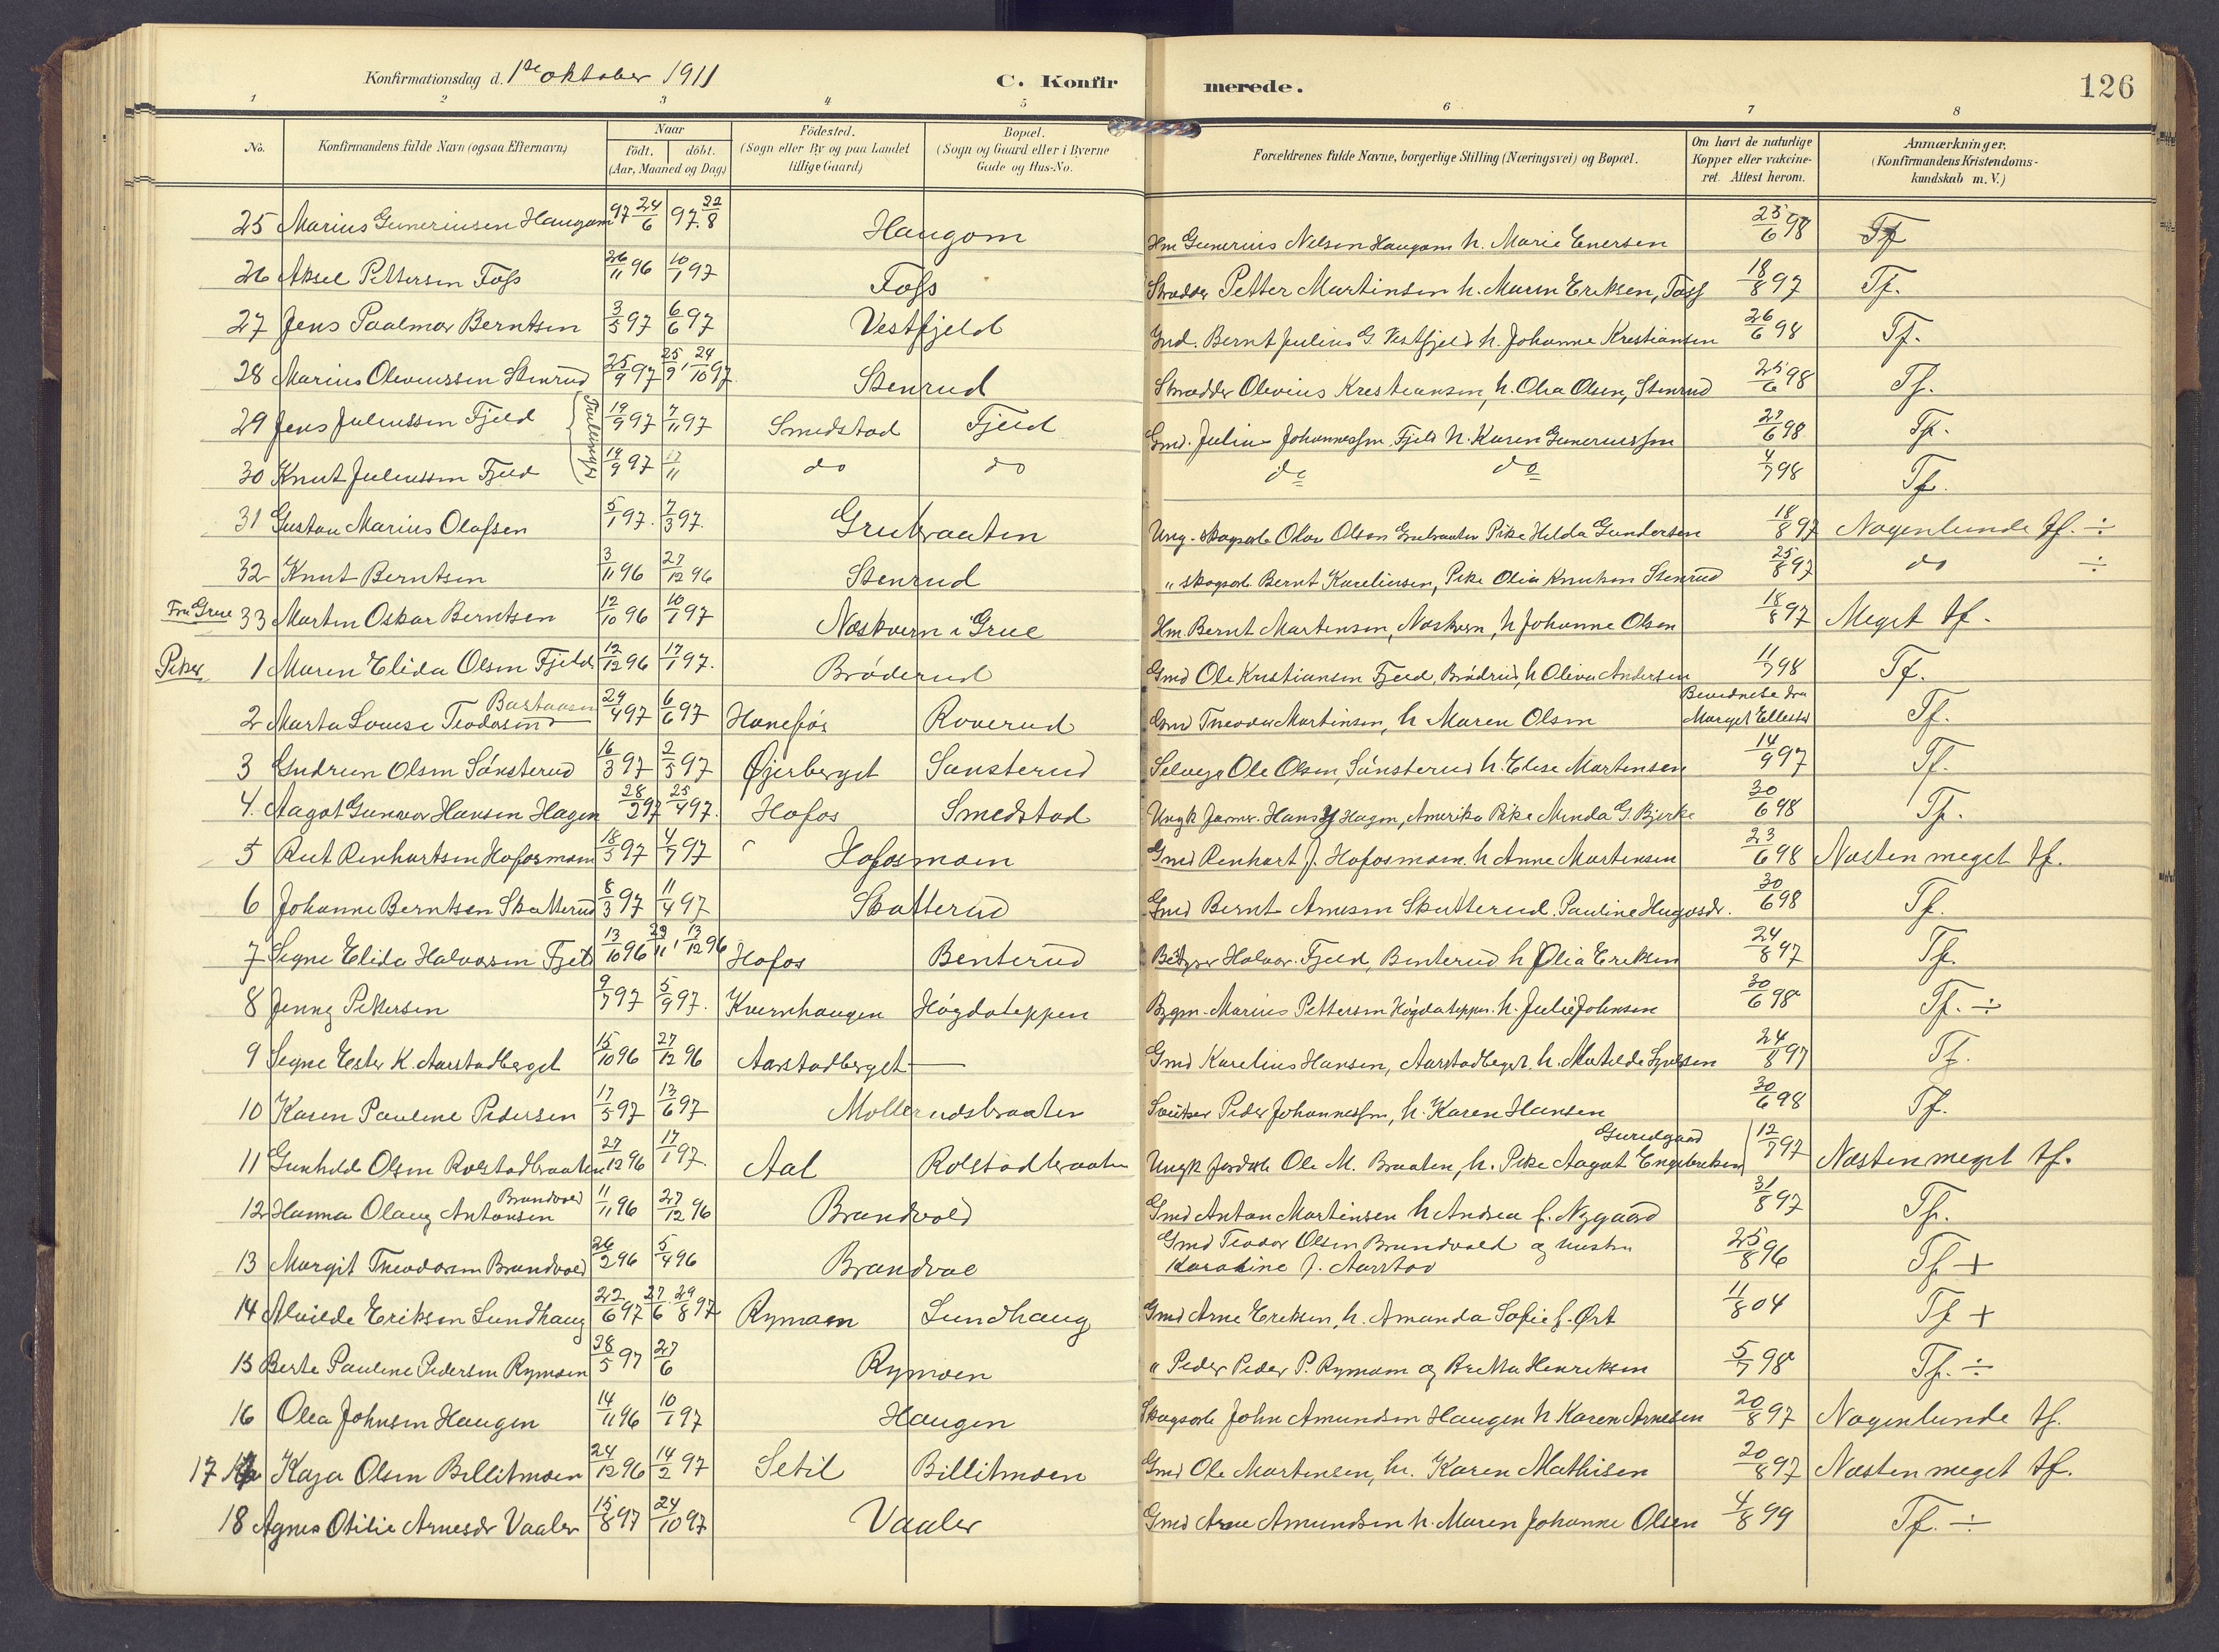 Konfirmationsdag d. 1ste oktober 1911 C. Konfirmerede. 126
1 2 3 4 5 6 7 8
No. Konfirmandens fulde Navn (ogsaa Efternavn) Naar födt. döbt. (Aar, Maaned og Dag) Födested. (Sogn eller By og paa Landet tillige Gaard) Bopæl. (Sogn og Gaard eller i Byerne Gade og Hus-No. Forældrenes fulde Navne, borgerlige Stilling (Næringsvei) og Bopæl. Om havt de naturlige Kopper eller vakcineret. Attest herom. Anmærkninger. (Konfirmandens Kristendomskundskab m. V.)
25 Marius Guneriusen Haugom 97 24/6 97 22/8 Haugom Hm Gunerius Nilsen Haugom h. Marie Enersen 25/6 98 Tf
26 Aksel Pettersen Foss 26/11 96 10/1 97 Foss Skrædder Petter Martinsen h. Maren Eriksen, Foss 18/8 97 Tf.
27 Jens Paalmar Berntsen 3/5 97 6/6 97 Vestfjeld Gmd. Bernt Julius G. Vestfjeld h. Johanne Kristiansen 26/6 98 Tf.
28 Marius Oliviussen Stenrud 25/9 97 25/9, 24/10 97 Stenrud Skrædder Olivius Kristiansen, h. Olia Olsen, Stenrud 25/6 98 Tf.
29 Jens Juliussen Fjeld Tvillinger 19/9 97 7/11 97 Smedstad Fjeld Gmd. Julius Johannessen Fjeld h. Karen Guneriussen 27/6 98 Tf.
30 Knut Juliussen Fjeld 19/9 97 17/11 do do do do 4/7 98 Tf.
31 Gustav Marius Olafsen 5/1 97. 7/3 97. Grubraaten Ung. skogsarb Olav Olsen Grubraaten Pike Hilda Gundersen 18/8 97 Nogenlunde tf. ÷
32 Knut Berntsen 3/11 96 27/12 96 Stenrud " skogsarb. Bernt Kareliusen, Pike Olia Knutsen Stenrud 25/8 97 do ÷
Fra Grue 33 Martin Oskar Berntsen 12/10 96 10/1 97 Næskvern i Grue Hm. Bernt Martinsen, Næskvern, h Johanne Olsen 18/8 97 Meget tf.
Piker 1 Maren Elida Olsen Fjeld 12/12 96 17/1 97. Bröderud Gmd Ole Kristiansen Fjeld, Brödrud, h Oliva Andersen 11/7 98 Tf.
2 Marta Lovise Teodorsen Bartaasen 29/4 97 6/6 97 Hanefos Roverud Gmd Theodor Martinsen, h Maren Olsen Bevidnelse fra Margit Tf.
3 Gudrun Olsen Sönsterud 16/3 97 2/5 97 Øjerberget Sønsterud Selveger Ole Olsen, Sönsterud h. Elise Martinsen 14/9 97 Tf.
4. Aagot Gunvor Hansen Hagen 28/2 97 25/4 97. Hofos Smedstad Ungk farmer. Hans Hagen, Amerika Pike Minda G. Bjerke 30/6 98 Tf.
5 Rut Renhartsen Hofosmoen 18/5 97 4/7 97 Hofosmoen Gmd Renhart J. Hofosmoen. h Anne Martinsen 23/6 98 Næsten meget tf.
6 Johanne Berntsen Skatterud 8/3 97 11/4 97 Skatterud Gmd Bernt Arnesen Skatterud. Pauline Hugosdr. 30/6 98 Tf.
7 Signe Elida Halvorsen Fjeld 13/10 96 29/11, 13/12 96 Hofos Benterud Halvor Fjeld, Benterud h Olia Eriksen 24/8 97 Tf.
8 Jenny Pettersen 9/7 97 5/9 97. Kvernhaugen Högdateppen Bygm. Marius Pettersen Högdateppen. h. Julie Johnsen 30/6 98 Tf. ÷
9 Signe Ester K. Aarstadberget 15/10 96 27/12 96 Aarstadberget — Gmd Karelius Hansen, Aarstadberget. h. Matilde Syversen 24/8 97 Tf.
10 Karen Pauline Pedersen 17/5 97 13/6 97 Mollerudsbraaten Peder Johannessen, h. Karen Hansen 30/6 98 Tf.
11 Gunhild Olsen Rolstadbraaten 27/12 96 17/1 97. Aal Rolstadbraaten Ungk jordarb Ole M. Braaten, h. Pike Aagot Engebriksen Guridgaard 12/7 97 Næsten meget tf.
12 Hanna Olaug Antonsen Brandvold 11/11 96 27/12 96 Brandvold Gmd Anton Martinsen h Andrea f. Nygaard 31/8 97 Tf.
13 Margit Theodorsen Brandvold 26/2 96 5/4 96 Brandvol Gmd Teodor Olsen Brandvold og hustru Karoline J. Aarstad 25/8 96 Tf +
14 Alvilde Eriksen Sundhaug 22/6 97 27/6. 29/8 97 Rymoen Sundhaug Gmd Arne Eriksen, h. Amanda Sofie f. Ørt 11/8 04 Tf +
15 Berte Pauline Pedersen Rymoen 28/5 97 27/6 Rymoen " Peder Peder P. Rymoen og Britta Henriksen 5/7 98 Tf. ÷
16 Olea Johnsen Haugen 14/11 96 10/1 97 Haugen Skogsarb John Amundsen Haugen h Karen Arnesen 20/8 97 Nogenlunde tf.
17 Kaja Olsen Billitmoen 24/12 96 14/2 97 Setil Billitmoen Gmd Ole Martinsen, h. Karen Mathisen 20/8 97 Næsten meget tf.
18 Agnes Otilie Arnesdr Vaaler 15/8 97 24/10 97 Vaaler Gmd Arne Amundsen h. Maren Johanne Olsen 4/8 99 Tf. ÷